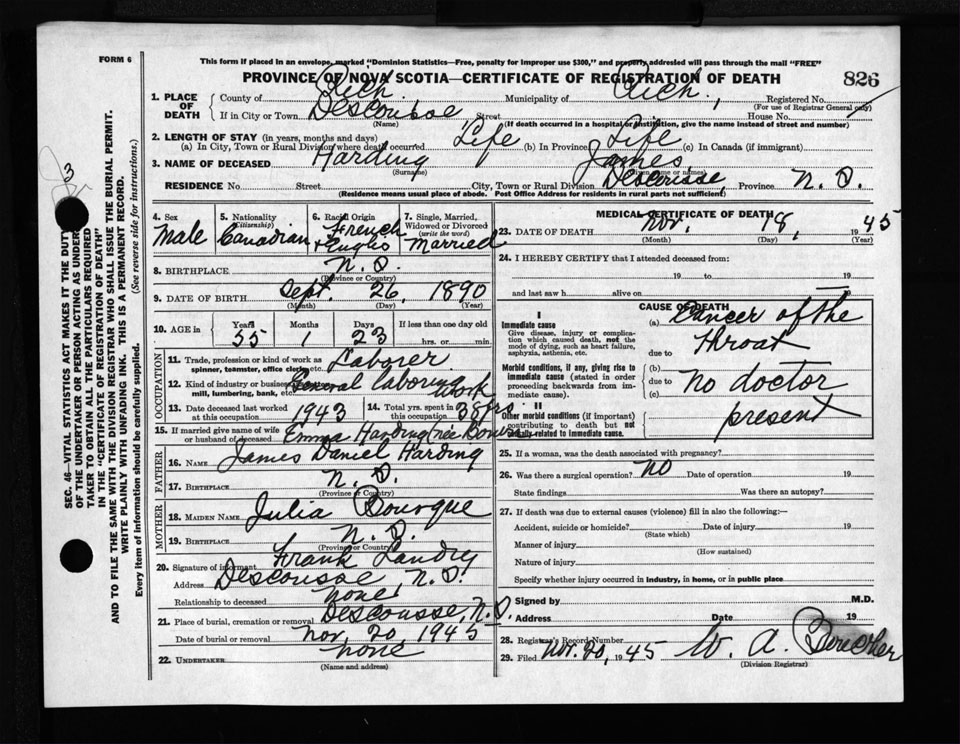 FORM 6
This form if placed in an envelope, marked "Dominion Statistics—Free, penalty for improper use $300," and properly addressed will pass through the mail "FREE"
PROVINCE OF NOVA SCOTIA—CERTIFICATE OF REGISTRATION OF DEATH
826
1. PLACE OF DEATH
County of Rich. Municipality of Rich., Registered No.
(For use of Registrar General only)
If in City or Town Descousse Street House No.
(Name) (If death occurred in a hospital or institution, give the name instead of street and number)
2. LENGTH OF STAY (in years, months and days)
(a) In City, Town or Rural Division where death occurred Life (b) In Province Life (c) In Canada (if immigrant)
3. NAME OF DECEASED Harding James
(Surname) (Given name or names)
RESIDENCE No. Street City, Town or Rural Division Descousse, Province N. S.
(Residence means usual place of abode. Post Office Address for residents in rural parts not sufficient)
4. Sex Male
5. Nationality (Citizenship) Canadian
6. Racial Origin French & Englis
7. Single, Married, Widowed or Divorced (write the word) Married
8. BIRTHPLACE N. S.
(Province or Country)
9. DATE OF BIRTH Sept. 26, 1890
(Month) (Day) (Year)
10. AGE in Years 55 Months 1 Days 23 If less than one day old
hrs. or min.
OCCUPATION
11. Trade, profession or kind of work as spinner, teamster, office clerk, etc. Laborer
12. Kind of industry or business mill, lumbering, bank, etc. General laboring work
13. Date deceased last worked at this occupation 1943
14. Total yrs. spent in this occupation 38 yrs
15. If married give name of wife or husband of deceased Emma Harding (née
FATHER
16. NAME James Daniel Harding
17. BIRTHPLACE N. S.
(Province or Country)
MOTHER
18. MAIDEN NAME Julia Bourque
19. BIRTHPLACE N. S.
(Province or Country)
20. Signature of informant Frank Landry
Address Descousse, N. S.
Relationship to deceased none
21. Place of burial, cremation or removal Descousse, N. S.
Date of burial or removal Nov. 20, 1945
22. UNDERTAKER none
(Name and address)
MEDICAL CERTIFICATE OF DEATH
23. DATE OF DEATH Nov. 18, 1945
(Month) (Day) (Year)
24. I HEREBY CERTIFY that I attended deceased from:
19 to 19
and last saw h alive on 19
CAUSE OF DEATH
I
Immediate cause
Give disease, injury or complication which caused death, not the mode of dying, such as heart failure, asphyxia, asthenia, etc.
(a) Cancer of the
due to Throat
Morbid conditions, if any, giving rise to immediate cause (stated in order proceeding backwards from immediate cause).
(b)
due to no doctor
(c) present
II
Other morbid conditions (if important) contributing to death but not causally related to immediate cause.
25. If a woman, was the death associated with pregnancy?
26. Was there a surgical operation? no Date of operation 19
State findings Was there an autopsy?
27. If death was due to external causes (violence) fill in also the following:—
Accident, suicide or homicide? Date of injury 19
(State which)
Manner of injury
(How sustained)
Nature of injury
Specify whether injury occurred in industry, in home, or in public place
Signed by M.D.
Address Date 19
28. Registrar's Record Number
29. Filed Nov. 20, 1945 W. A. Boucher
(Division Registrar)
SEC. 46—VITAL STATISTICS ACT MAKES IT THE DUTY
OF THE UNDERTAKER OR PERSON ACTING AS UNDER-
TAKER TO OBTAIN ALL THE PARTICULARS REQUIRED
IN THE "CERTIFICATE OF REGISTRATION OF DEATH"
AND TO FILE THE SAME WITH THE DIVISION REGISTRAR WHO SHALL ISSUE THE BURIAL PERMIT.
WRITE PLAINLY WITH UNFADING INK. THIS IS A PERMANENT RECORD.
Every item of information should be carefully supplied. (See reverse side for instructions.)